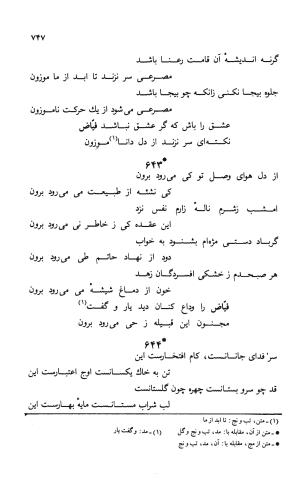 ۷۴۷
گرنه اندیشهٔ آن قامت رعنا باشد
مصرعی سر نزند تا ابد از ما موزون
جلوه بیجا نکنی زانکه چو بیجا باشد
مصرعی می‌شود از یك حرکت ناموزون
عشق را باش که گر عشق نباشد فیّاض
نکته‌ای سر نزند از دل دانا(۱) موزون
*۶۴۳
از دل هوای وصل تو کی می‌رود برون
کی نشئه از طبیعت می می‌رود برون
امشب زشرم نالهٔ زارم نفس نزد
این عقده کی ز خاطر نی می‌رود برون
گرباد دستی مژه‌ام بشنود به خواب
دود از نهاد حاتم طی می‌رود برون
هر صبحدم ز خشکی افسردگان زهد
خون از دماغ شیشهٔ می می‌رود برون
فیّاض را وداع کنان دید یار و گفت(۱)
مجنون این قبیله ز حی می‌رود برون
*۶۴۴
سر فدای جانانست، کام افتخارست این
تن به خاك یکسانست اوج اعتبارست این
قد چو سرو بستانست چهره چون گلستانست
لب شراب مستانست مایهٔ بهارست این
(۱)- متن، تب و نج: تا ابد از ما
* - متن از آن، مقابله با: مد، تب و نج و گل
(۱)- مد: وگفت یار
* - متن از مج، مقابله با: آن، مد، تب و نج